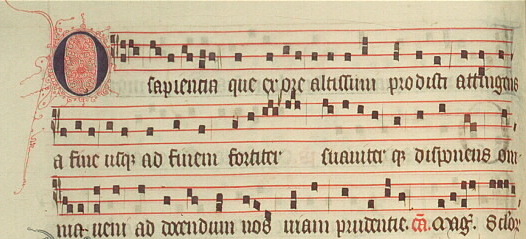 O sapientia que ex ore altissimi prodisti attingens
a fine usqꝫ ad finem fortiter suauiter qꝫ disponens om
nia ueni ad docendum nos uiam prudentie.